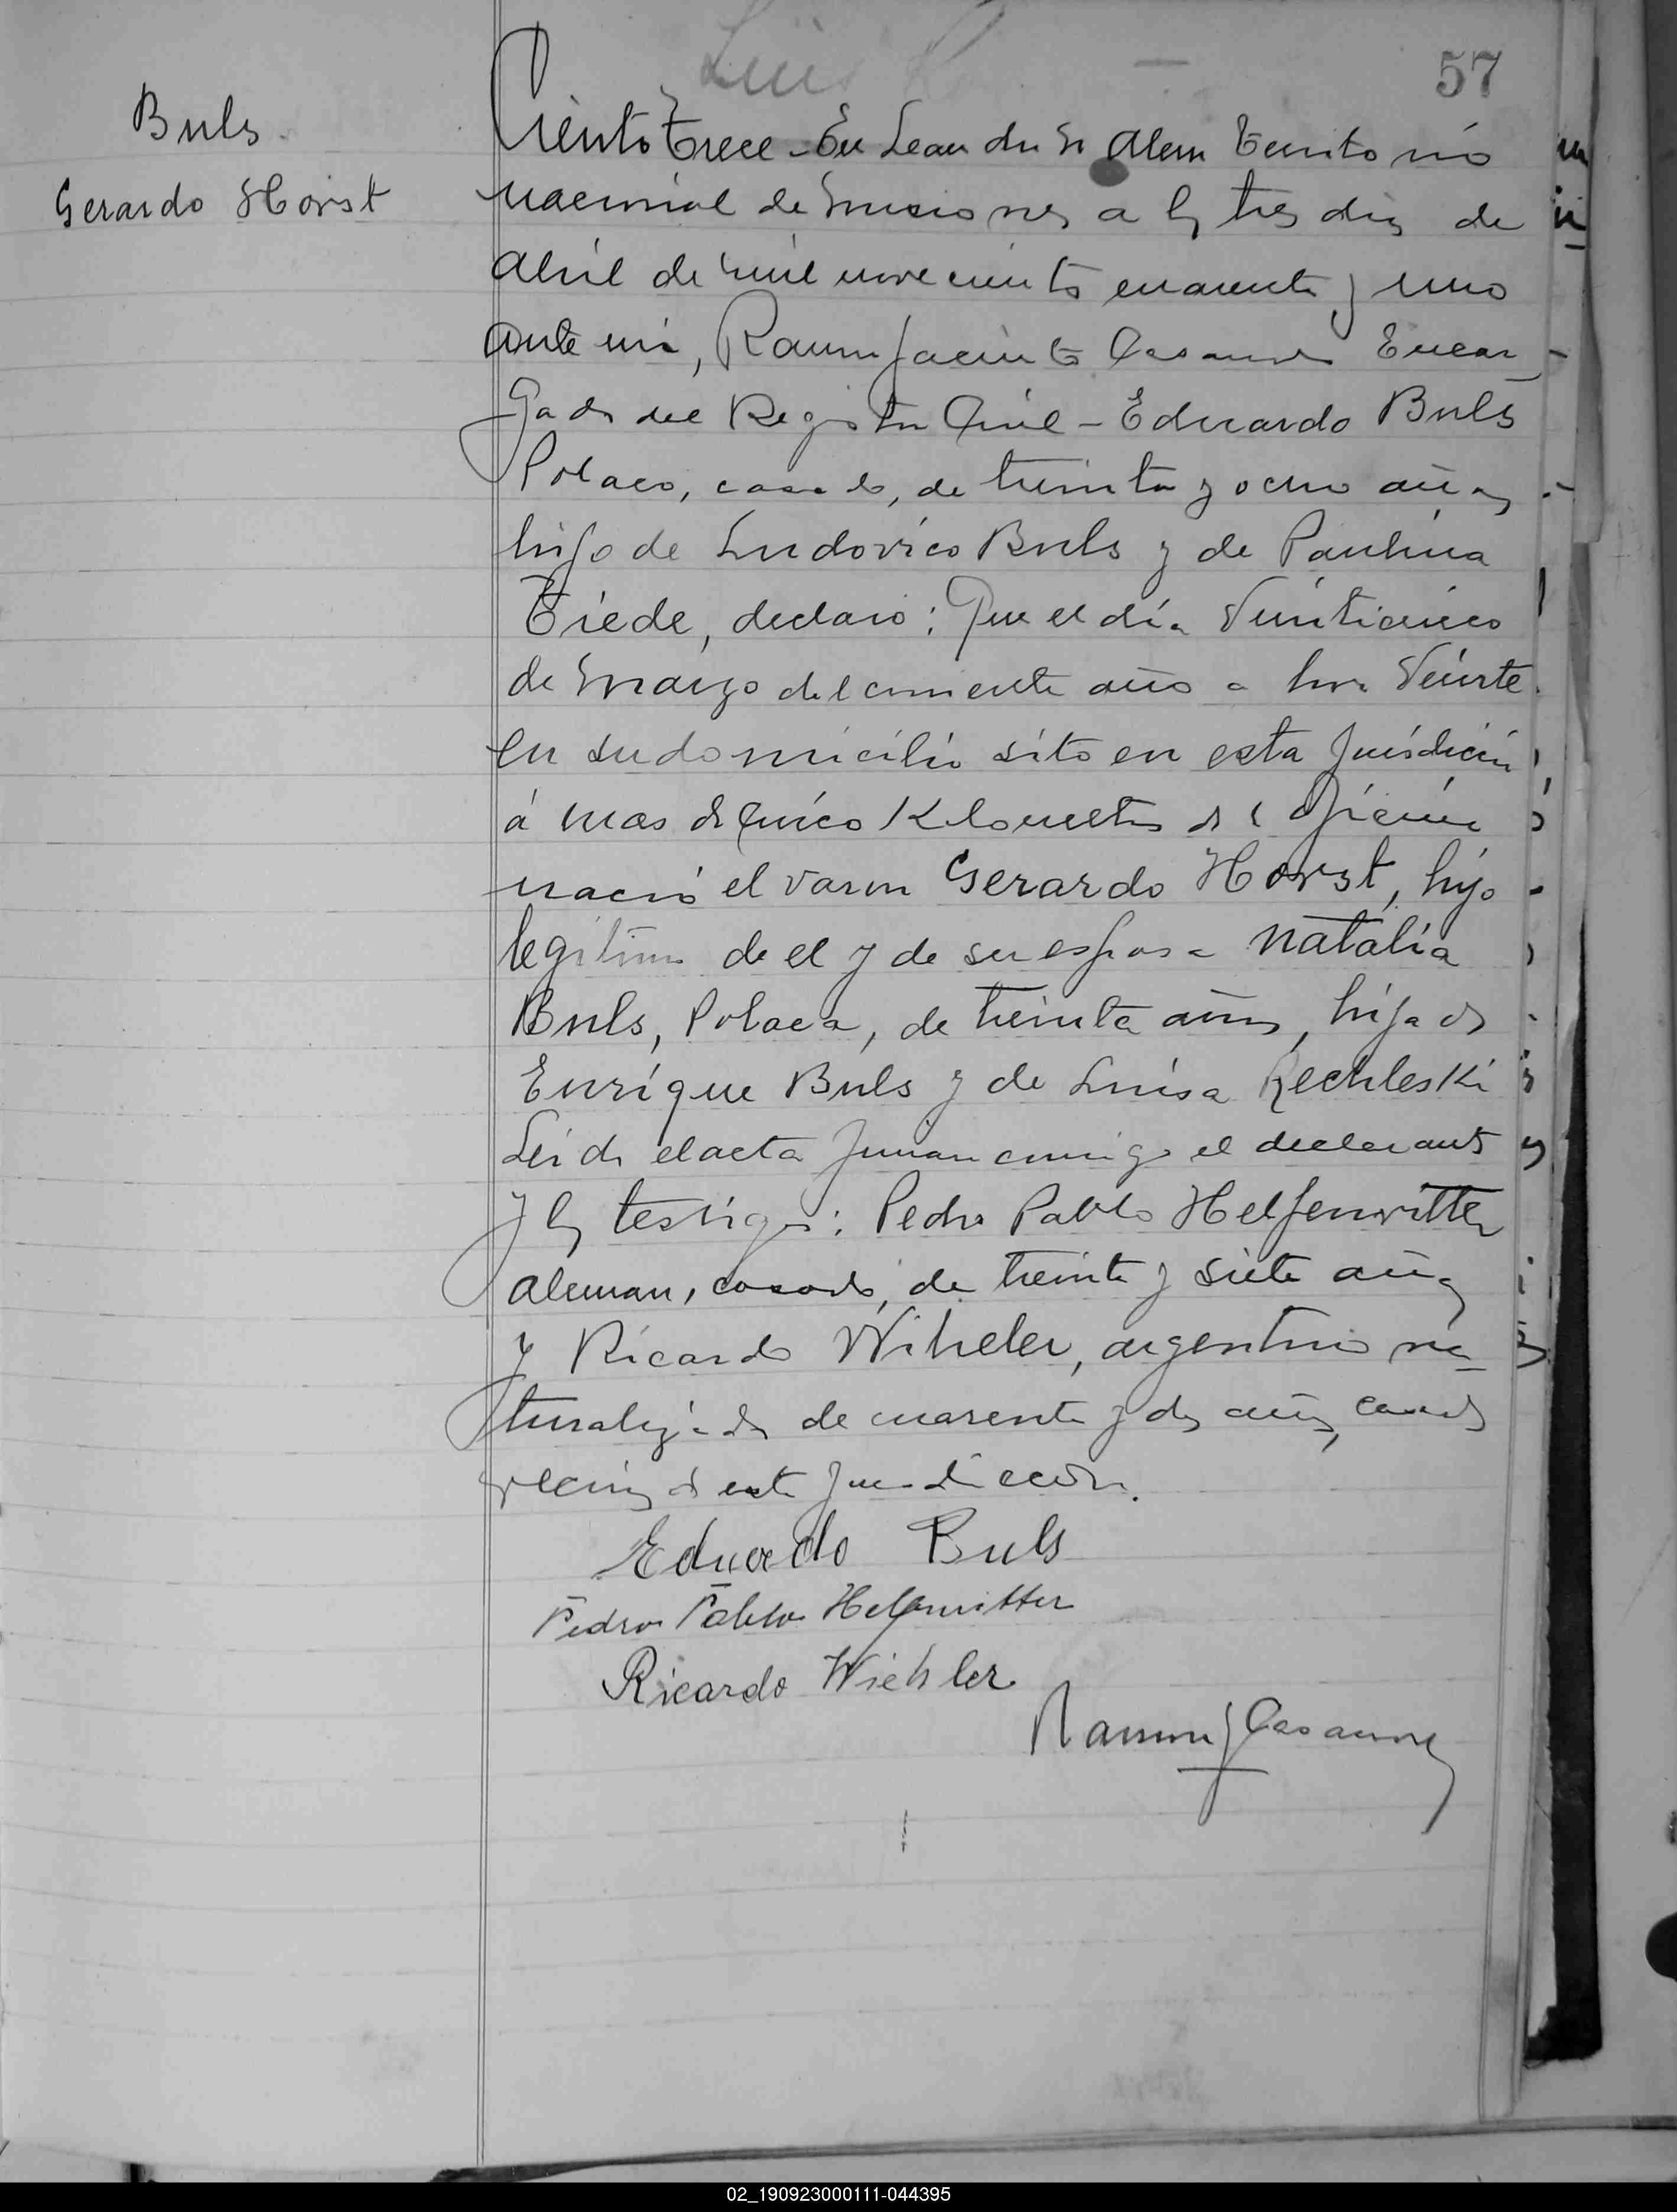 57
Buls
Gerardo Horst
Ciento trece - En Leandro N Alem Territorio
nacional de Misiones a los tres dias de
Abril de mil novecientos cuarenta y uno
ante mi, Ramon Jacinto Casanova Encar
gado del Registro Civil - Eduardo Buls
Polaco, casado, de treinta y ocho años
hijo de Ludovico Buls y de Paulina
Tiede, declaró: Que el día Veinticinco
de Marzo del corriente año a hora Veinte
en su domicilio sito en esta Jurisdicción
á mas de cinco Kilometros de la Oficina
nació el varon Gerardo Horst, hijo
legitimo de el y de su esposa Natalia
Buls, Polaca, de treinta años, hija de
Enrique Buls y de Luisa
Leida el acta firman conmigo el declarante
y los testigos: Pedro Pablo Helfenritter
aleman, casado, de treinta y siete años
y Ricardo Wiheler, argentino na-
turalizado de cuarenta y dos años, casado
vecinos de esta Jurisdiccion.
Eduardo Buls
Pedro Pablo Helfenritter
Ricardo Wiehler
Ramon J Casanova
02_190923000111-044395